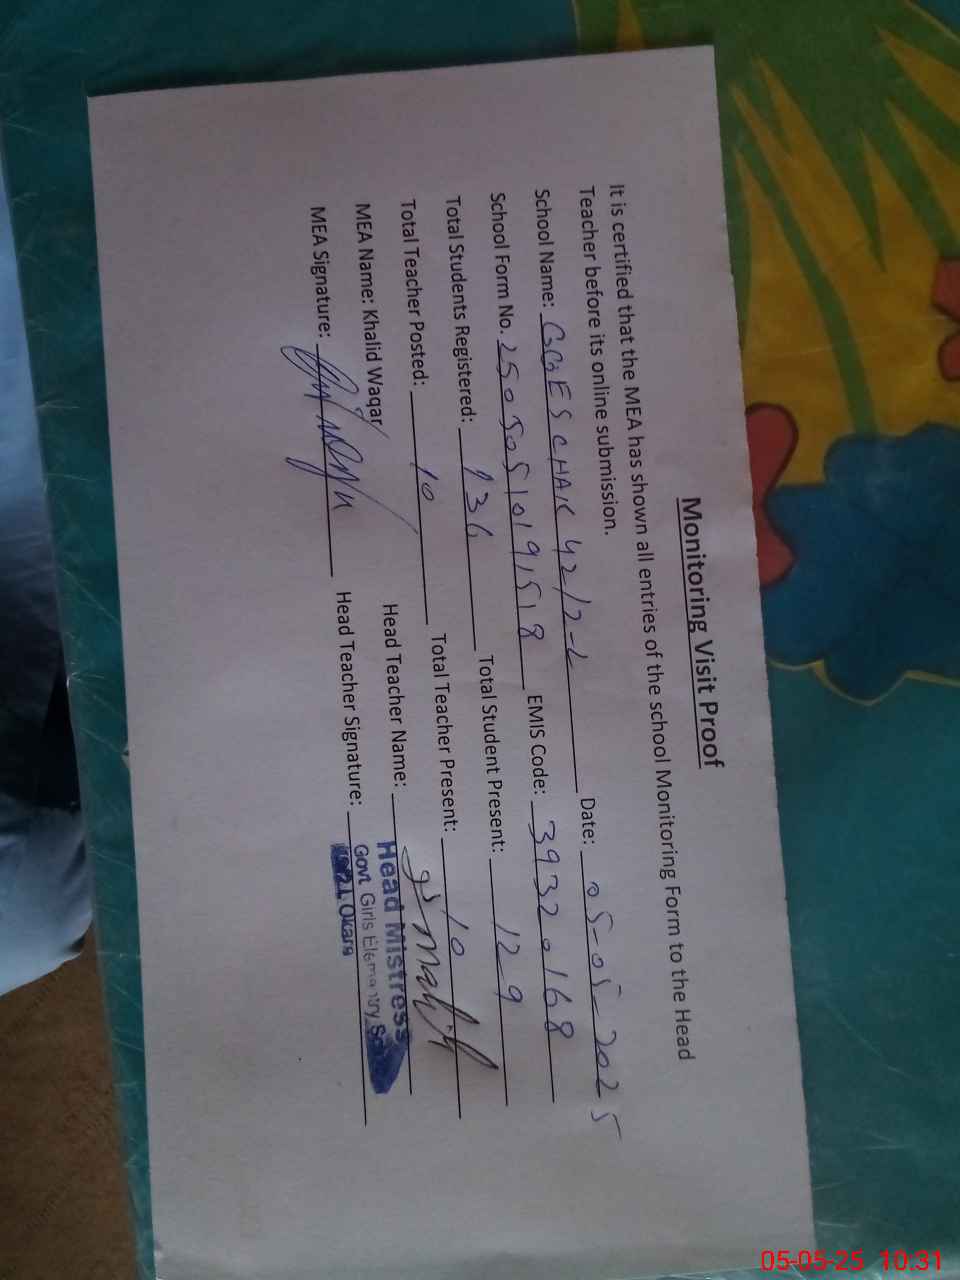 Monitoring Visit Proof
It is certified that the MEA has shown all entries of the school Monitoring Form to the Head
Teacher before its online submission.
School Name: GGES CHAK 42/2-L Date: 05-05-2025
School Form No. 25050510191518 EMIS Code: 39320168
Total Students Registered: 136 Total Student Present: 129
Total Teacher Posted: 10 Total Teacher Present: 10
MEA Name: Khalid Waqar Head Teacher Name:
Head Mistress
MEA Signature: Head Teacher Signature:
Govt Girls Elementry
Okara
05-05-25 10:31